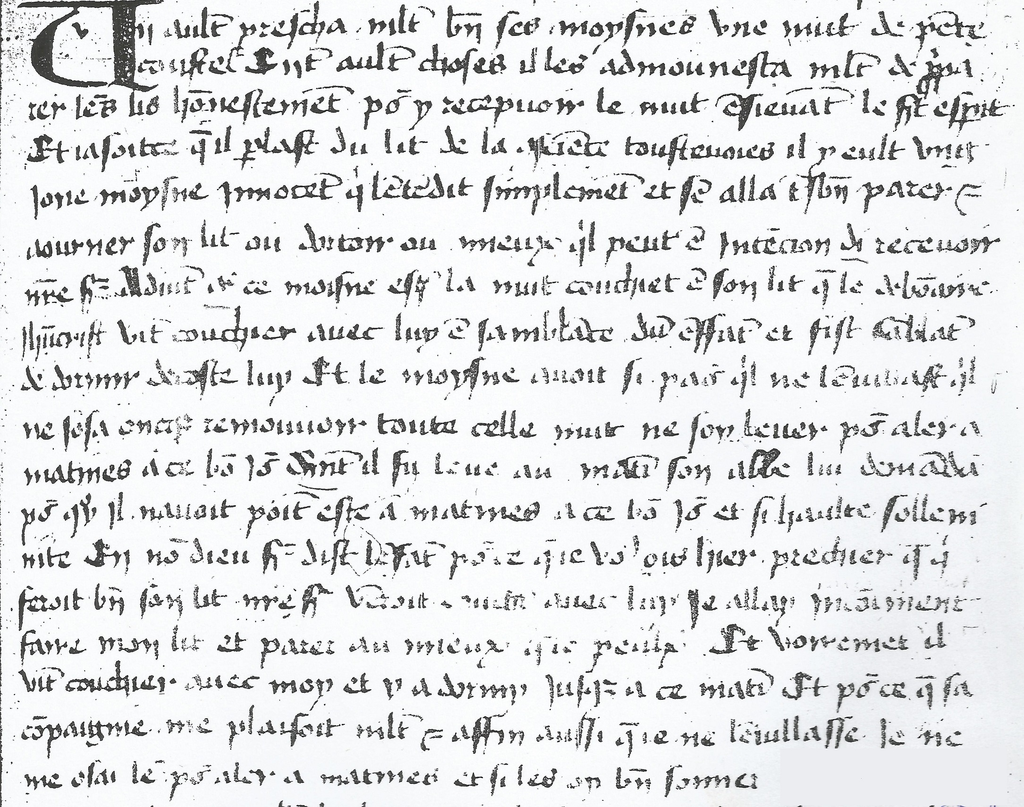 Un ault prescha mlt bn ses moysnes une nuit de pēte
couste Entr ault choses il les admounesta mlt de ppa
rer lers lis honestemet pos y recepvoir le nuit essievāt le st esprit
Et iasoitce q il plast du lit de la osciēce touttevoies il y eult ung
Jone moysne Innocet q lētedit simplemet et sē alla tsbn parer z
aourner son lit ou dortoir au mieux ql peut ē Intēcion di recevoir
nre sr Advint q ce moisne est la nuit couchiet ē son lit q le debōaire
Jhucrist vit couchier avec luy ē samblāce du effāt et fist sāblāt
de dormir decoste luy Et le moysne avoit si paor ql ne lēvillast ql
ne sosa oncqs remouvoir toute celle nuit ne soy lever pos aler a
matines a ce bō Jor quāt il fu leve au mati son abbe lui demāda
pos qy Il navoit poit este a matines a ce bō Jor et si haulte sollem
nite En nō dieu sr dist lesfāt posce que vos ois hier prechier q q
feroit bn son lit nre sr vēroit couchr avec luy Je allay incōtinent
faire mon lit et parer au mieux que peulx Et vorremet il
vit couchier avec moy et y a dormy Jusqz a ce mati Et posce q sa
cōpaignie me plaisoit mlt z affin aussi q ie ne lēvillasse Je ne
me osai lē pos aler a matines et si les oy bn sonner